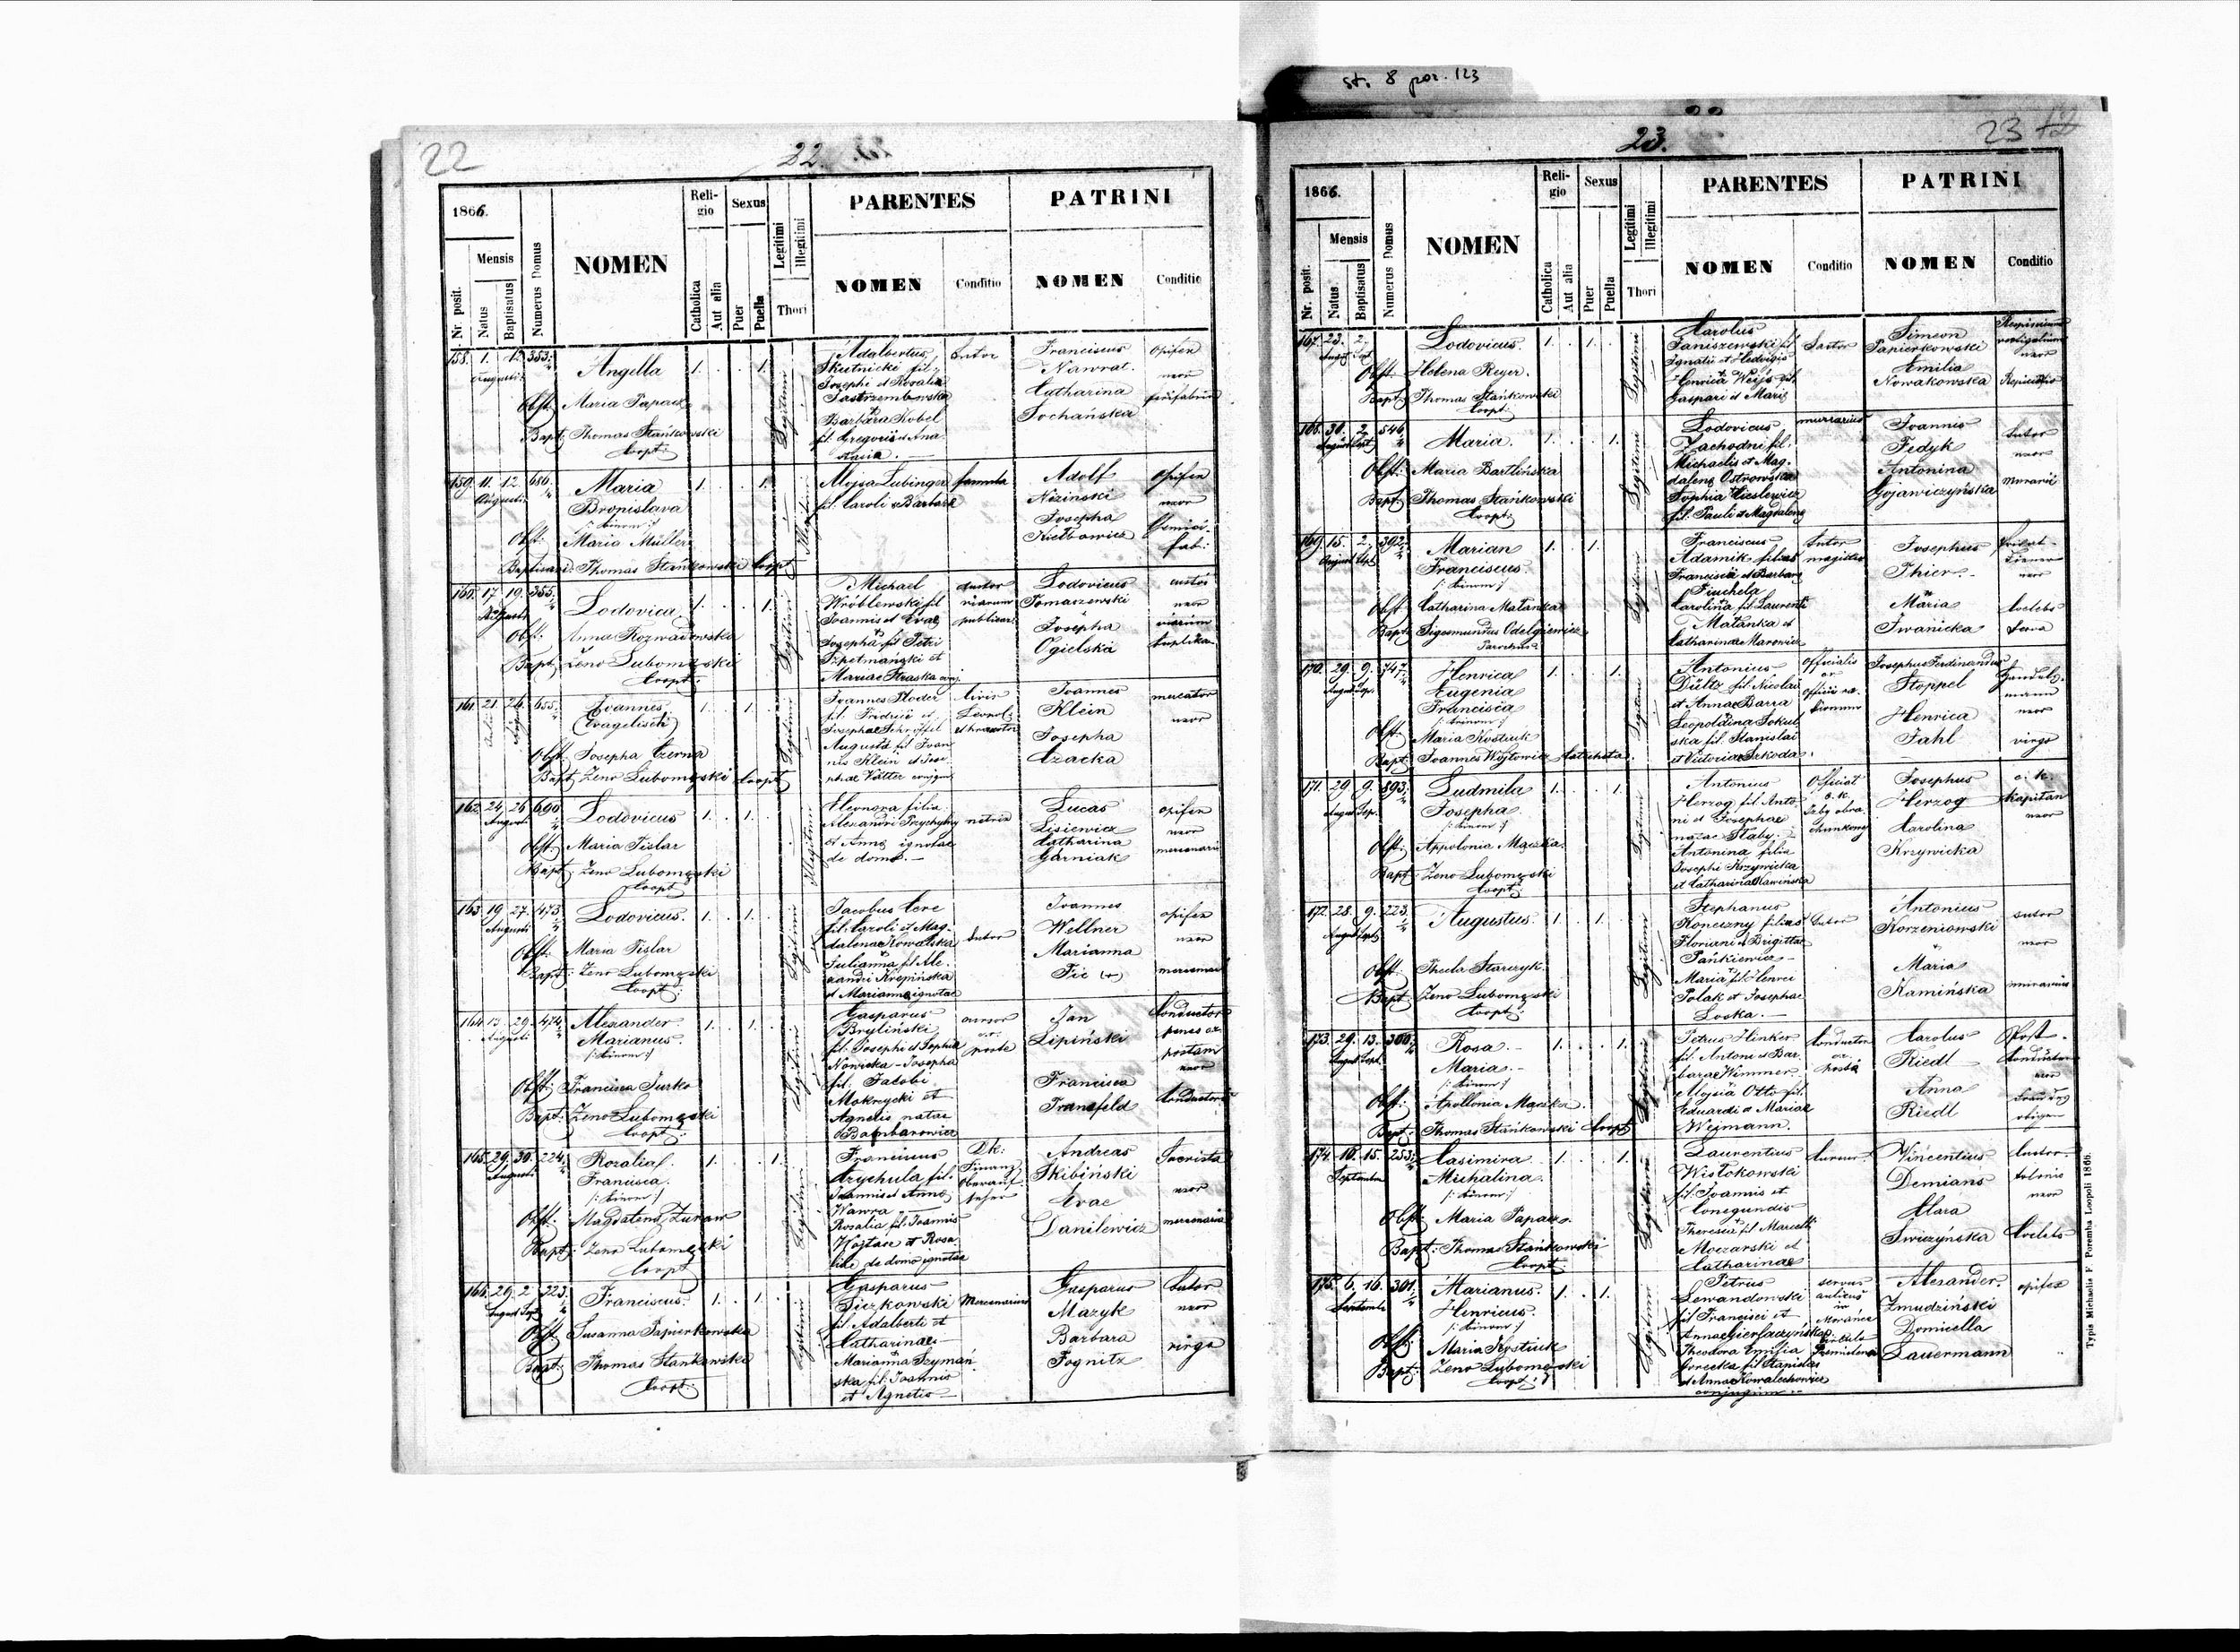 st. 8 poz. 123
22
22.
1866.
Nr. posit.
Mensis
Natus
Baptisatus
Numerus Domus
NOMEN
Religio
Catholica
Aut alia
Sexus
Puer
Puella
Legitimi
Illegitimi
Thori
PARENTES
NOMEN
Conditio
PATRINI
NOMEN
Conditio
158. 1. 12. 353.
Augusti
Angella
1. 1.
Obst. Maria Paparz
Bapt. Thomas Stańkowski
Coopt.
Legitimi
Adalbertus
Skutnicki fil.
Josephi et Rosalia
Jastrzembowska
Barbara Kobel
fil. Gregorii et Anastasia.
Sutor
Franciscus
Nawrat.
Catharina
Sochańska
Opifex
uxor
159. 11. 12. 686.
Augusti
Maria
Bronislava
/: binom :/
1. 1.
Obst: Maria Müller
Thomas Stańkowski Coopt.
Aloysa Lubinger
fil. Caroli et Barbara
famula
Adolf
Nizinski
Josepha
Kiełbowicz
Opifex
uxor
160. 17. 19. 355.
Lodovica
1. 1.
Obst: Anna Rozwadowska
Bapt. Zeno Lubomęski
Coopt.
Legitimi
Michael
Wróblewski fil
Joannis et Evae
Josepha fil Petri
Szpetmański et
Mariae Straska conj.
custos
viarum
publicar.
Lodovicus
Tomaszewski
Josepha
Ogielska
custos
uxor
viarum
161. 21. 26. 655.
Joannes
(Evagelisch)
1. 1.
Obst. Josepha Czerna
Bapt. Zeno Lubomęski Coopt.
Legitimi
Joannes Ploder
fil. Fridrici et
Josephae Schröffel
Augusta fil Joannis Klein et Josephae Vätter conjugum
Civis
Leopol.
Joannes
Klein
Josepha
Czacka
mercator
uxor
162. 24. 26. 690.
Augusti
Lodovicus
1. 1.
Obst. Maria Fislar
Bapt. Zeno Lubomęski
Coopt.
Illegitimi
Eleonora filia
Alexandri Przychylny
et Anna ignotae
de domo.
nutrix
Lucas
Lisiewicz
Catharina
Garniak
opifex
uxor
mercenarii
163. 19. 27. 473.
Augusti
Lodovicus.
1. 1.
Obst. Maria Fislar
Bapt: Zeno Lubomęski
Coopt:
Legitimi
Jacobus Cere
fil. Caroli et Magdalenae Kowalska
Julianna fil Alexandri Krepińska
et Marianna ignotae
Sutor
Joannes
Wellner
Marianna
Fic (+)
opifex
uxor
164. 13. 29. 474.
Augusti
Alexander
Marianus.
/: binom :/
1. 1.
Obst. Francisca Jurko
Bapt. Zeno Lubomęski
Coopt.
Legitimi
Gasparus
Bryliński
fil. Josephi et Sophia
Nowicka - Josepha
fil. Jacobi
Mokrzycki et
Agnetis natae
Bambarowicz
cursor
poste
Jan
Lipiński
Francisca
Transfeld
Conductor
penes
postam
uxor
Conductoris
165. 29. 30. 224.
Augusti
Rozalia
Francisca.
/: binom :/
1. 1.
Obst. Magdalena Żuraw
Bapt. Zeno Lubomęski
Coopt.
Legitimi
Franciscus
Arychula fil.
Joannis et Anna
Wawra
Rosalia fil. Joannis
Wojtase et Rosaliae de domo ignotae
Kk:
Finanz
Oberaufseher
Andreas
Skibiński
Evae
Danilewicz
Sacrista
uxor
mercenarii
166. 29. 2. 223.
August. Sept.
Franciscus.
1. 1.
Obst. Susanna Papierkowska
Bapt: Thomas Stańkowski
Coopt.
Legitimi
Gasparus
Siczkowski
fil Adalberti et
Catharinae
Marianna Szymańska fil. Joannis
et Agnetis
Mercenarius
Gasparus
Mazyk
Barbara
Fognitz
Sutor
uxor
virgo
23
12
23.
1866.
Nr. posit.
Mensis
Natus
Baptisatus
Numerus Domus
NOMEN
Religio
Catholica
Aut alia
Sexus
Puer
Puella
Legitimi
Illegitimi
Thori
PARENTES
NOMEN
Conditio
PATRINI
NOMEN
Conditio
167. 23. 2.
August. Sept.
Lodovicus.
1. 1.
Obst. Helena Reyer.
Bapt. Thomas Stańkowski
Coopt.
Legitimi
Karolus
Janiszewski fil
Ignatii et Hedvigis
Henrica Weiss fil.
Gaspari et Maria
Sartor
Simeon
Papierkowski
Emilia
Nowakowska
uxor
168. 30. 2. 546.
August. Sept.
Maria.
1. 1.
Obst: Maria Bartlińska
Bapt. Thomas Stańkowski
Coopt.
Legitimi
Lodovicus
Zachodni fil.
Michaelis et Magdalena Ostrowska
Sophia Cieslewicz
fil. Pauli et Magdalena
murarius
Joannis
Fedyk
Antonina
Gojawiczyńska
Sutor
uxor
Murarii
169. 15. 2. 392.
August. Sept.
Marian
Franciscus
/: binom :/
1. 1.
Obst. Catharina Matanka
Bapt. Sigismundus Odelgiewicz
Parochus
Legitimi
Franciscus
Adamik filius
Francisci et Barbara
Piuchela
Carolina fil Laurenti
Matanka et
Catharinae Marowicz
Sutor
magister
Josephus
Thier.
Maria
Iwanicka
uxor
170. 29. 9. 747.
August. Sep.
Henrica
Eugenia
Francisca
/: trinom :/
1. 1.
Obst. Maria Kostiuk
Bapt. Joannes Wojtowicz Catecheta.
Legitimi
Antonius
Dültz fil Nicolai
et Anna Barra
Leopoldina Sokulska fil. Stanislai
et Victoria Szkoda.
Officialis
Josephus Ferdinandus
Stoppel
Henrica
Fahl
uxor
virgo
171. 29. 9. 893.
August. Sep.
Ludmila
Josepha
/: binom :/
1. 1.
Obst. Appolonia Mączka.
Bapt. Zeno Lubomęski
Coopt.
Legitimi
Antonius
Herzog fil Antoni et Josephae
natae Staby
Antonina filia
Josephi Krzywicka
et Catharina Rawińska
Official
c. k.
Izby obrachunkowej
Josephus
Herzog
Karolina
Krzywicka
c. k.
Kapitan
uxor
172. 28. 9. 223.
August. Sept.
Augustus.
1. 1.
Obst. Thecla Starczyk.
Bapt. Zeno Lubomęski
Coopt.
Legitimi
Stephanus
Koneczny filius
Floriani et Brigittae
Pańkiewicz
Maria fil Henrici
Polak et Josephae
Loska.
Sutor
Antonius
Korzeniowski
Maria
Kamińska
sutor
uxor
murarius
173. 29. 13. 300.
August. Sept.
Rosa.
Maria.
/: binom :/
1. 1.
Obst. Apollonia Mączka.
Bapt. Thomas Stańkowski Coopt.
Legitimi
Petrus Hinker
fil. Antoni et Barbarae Wimmer
Aloysia Otto fil.
Eduardi et Mariae
Wejmann.
Conductor
Karolus
Riedl
Anna
Riedl
Post
Conducteur
uxor
174. 10. 15. 253.
Septembra
Casimira
Michalina.
/: binom :/
1. 1.
Obst. Maria Paparz.
Bapt: Thomas Stańkowski
Coopt.
Legitimi
Laurentius
Wistokowski
fil. Joannis et
Conegundis
Theresia fil Marcelli
Moczarski et
Catharinae
Vincentius
Demians
Clara
Swiczyńska
uxor
175. 6. 16. 301.
Septembr.
Marianus.
Henricus.
/: binom :/
1. 1.
Obst. Maria Kostiuk
Bapt. Zeno Lubomęski
Coopt.
Legitimi
Petrus
Lewandowski
fil Francisci et
Theodora Emilia
Gorecka fil Stanislai
et Anna Kowalechowicz
conjugum
servus
aulicus
in
Alexander
Żmudziński
Domicella
Lauermann
opifex
Typis Michaelis F Poremba Leopoli 1866.